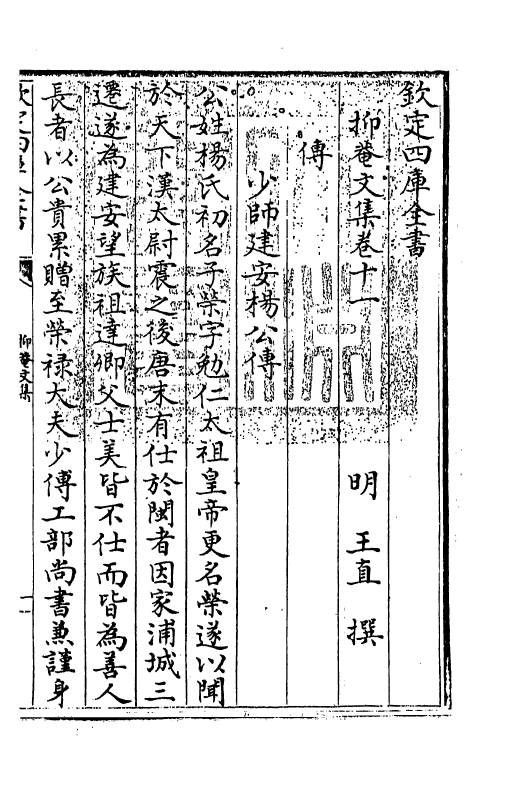 欽定四庫全書
抑菴文集卷十一 明 王直 撰
傳
少師建安楊公傳
公姓楊氏初名子榮字勉仁太祖皇帝更名榮遂以聞
於天下漢太尉震之後唐末有仕於閩者因家浦城三
遷遂為建安望族祖達卿父士美皆不仕而皆為善人
長者以公貴累贈至榮禄大夫少傅工部尚書兼謹身
抑菴文集
一